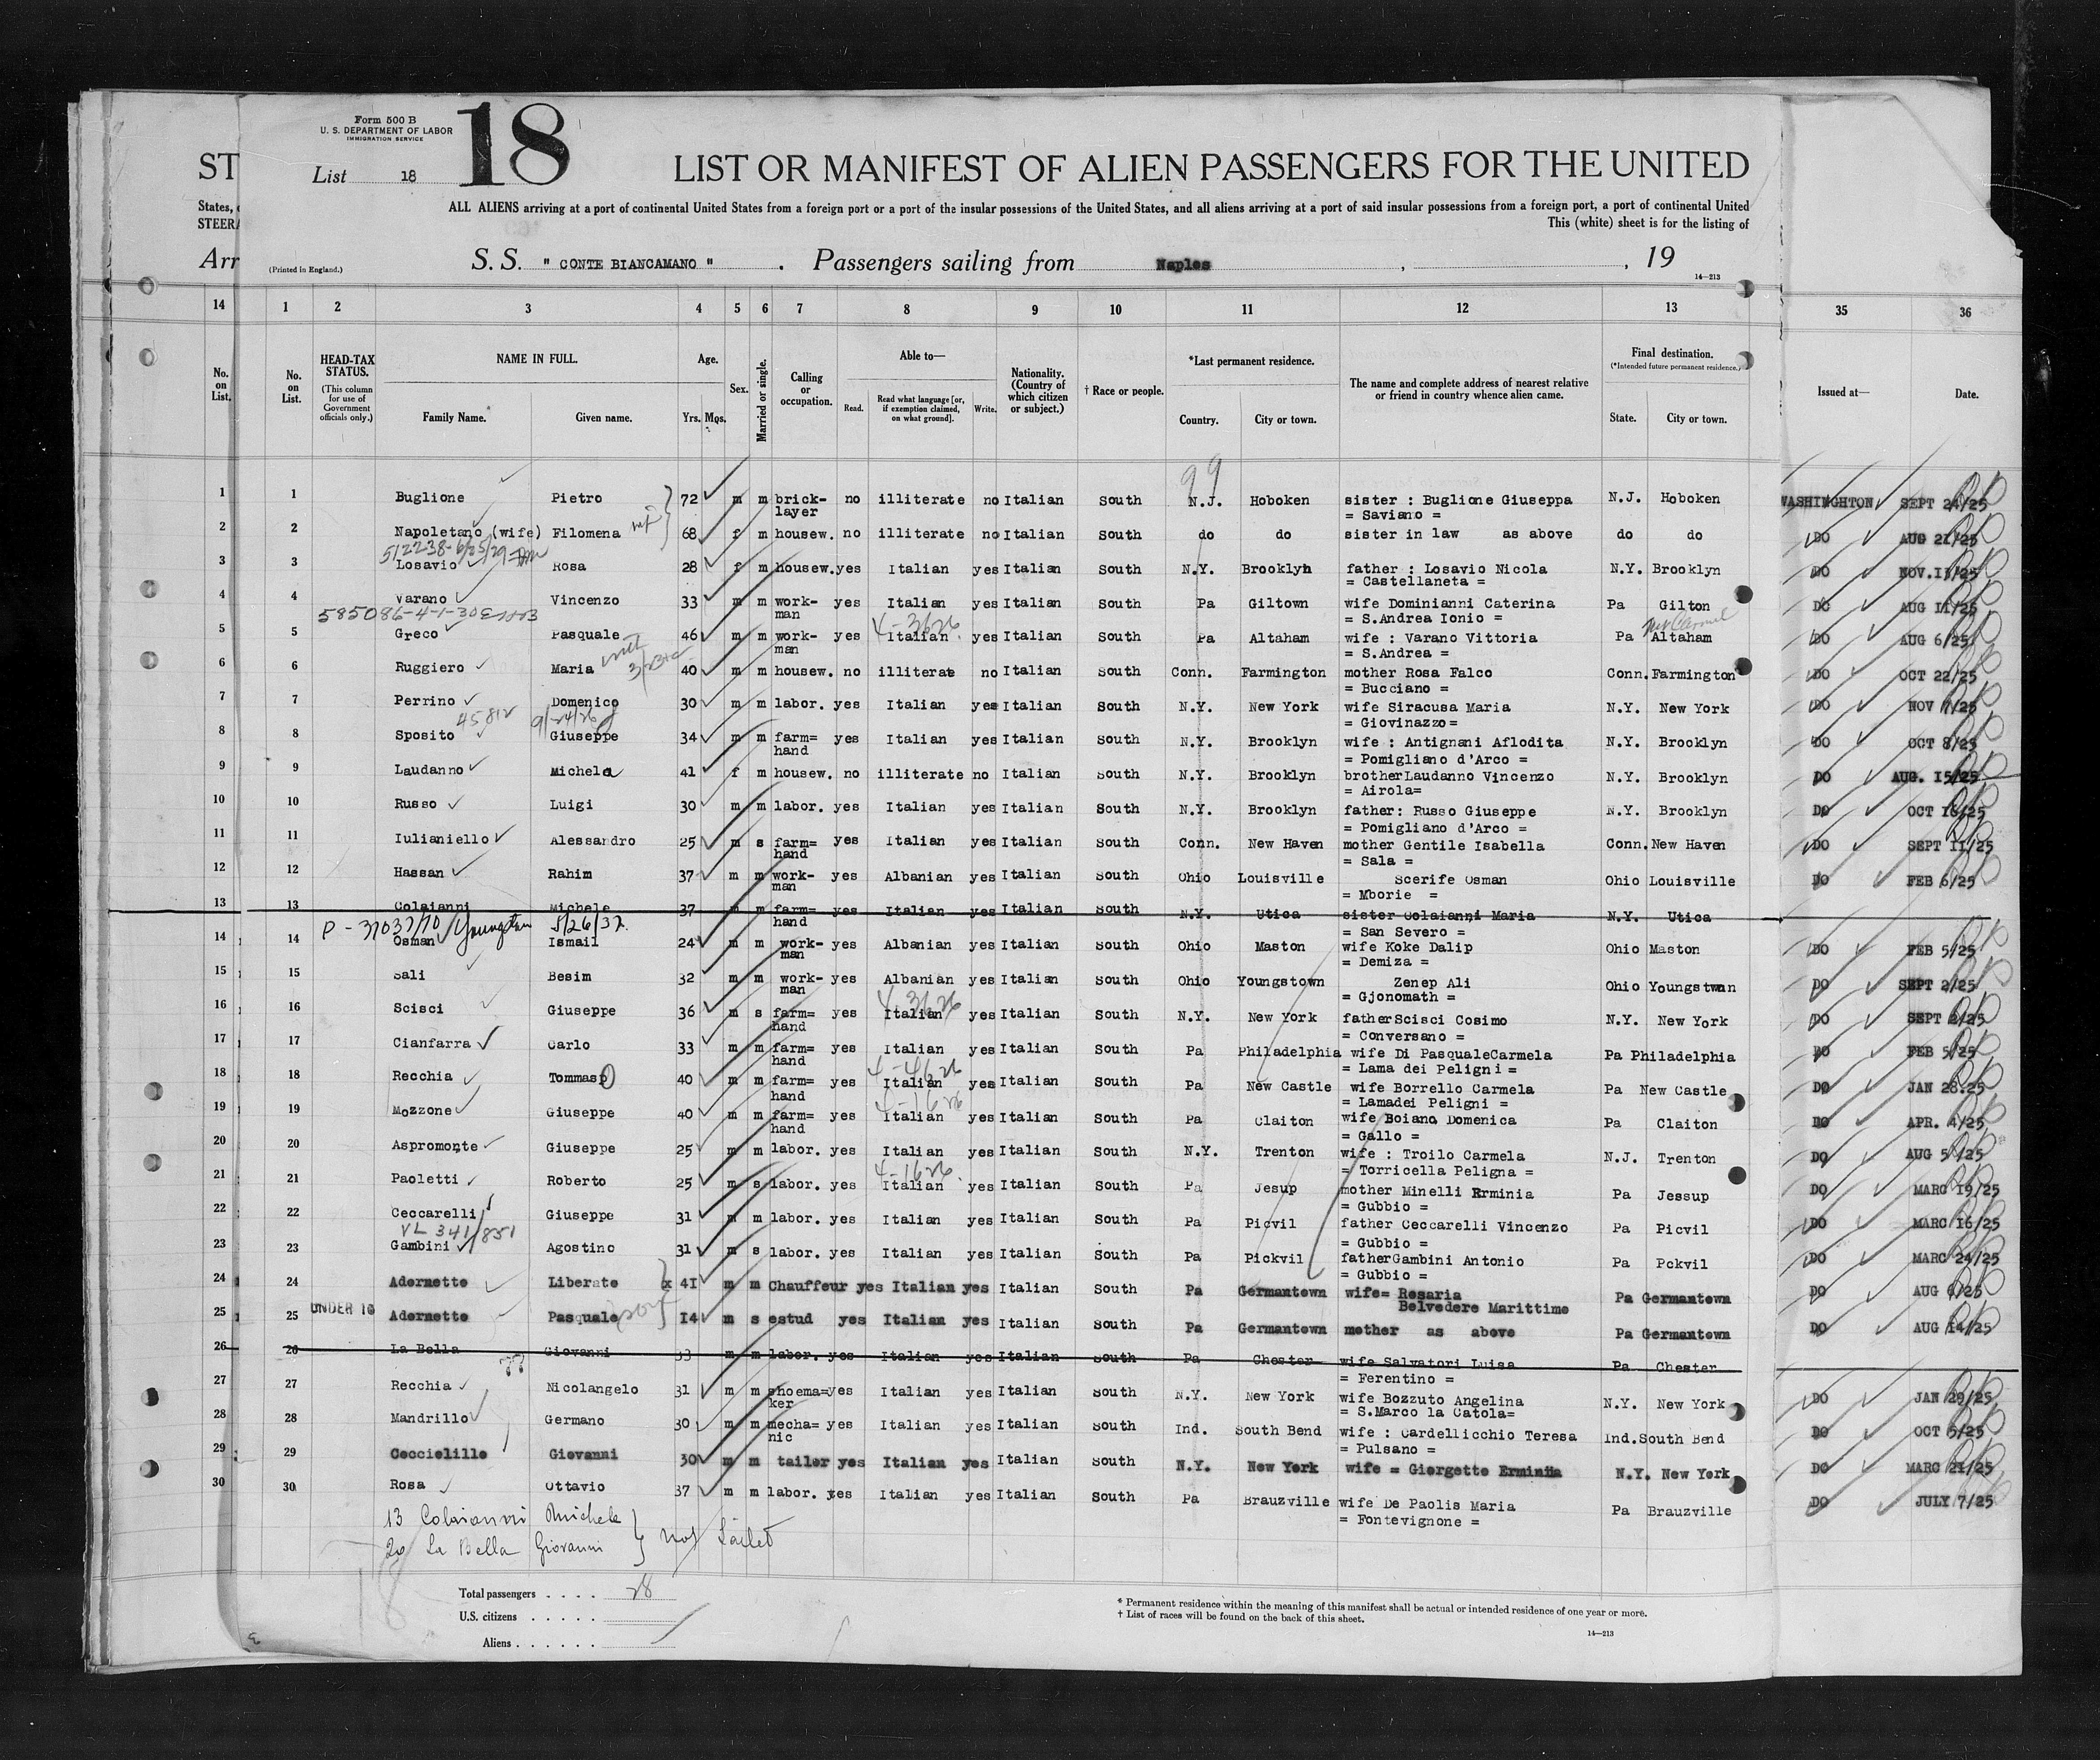 Form 500 B
U. S. DEPARTMENT OF LABOR
IMMIGRATION SERVICE
18
ST
List 18
LIST OR MANIFEST OF ALIEN PASSENGERS FOR THE UNITED
States,
ALL ALIENS arriving at a port of continental United States from a foreign port or a port of the insular possessions of the United States, and all aliens arriving at a port of said insular possessions from a foreign port, a port of continental United
STEERA
This (white) sheet is for the listing of
Arr
(Printed in England.)
S. S. " CONTE BIANCAMANO " . Passengers sailing from Naples , , 19
14—213
14 1 2 3 4 5 6 7 8 9 10 11 12 13 35 36
No. on List.
No. on List.
HEAD-TAX STATUS.
(This column for use of Government officials only.)
NAME IN FULL.
Family Name. Given name.
Age.
Yrs. Mos.
Sex.
Married or single.
Calling or occupation.
Able to—
Read. Read what language [or, if exemption claimed, on what ground]. Write.
Nationality. (Country of which citizen or subject.)
† Race or people.
*Last permanent residence.
Country. City or town.
The name and complete address of nearest relative or friend in country whence alien came.
Final destination.
(*Intended future permanent residence.)
State. City or town.
Issued at— Date.
99
1 1 Buglione Pietro 72 m m brick- no illiterate no Italian South N.J. Hoboken sister : Buglione Giuseppa N.J. Hoboken WASHINGHTON SEPT 24/25
layer = Saviano =
2 2 Napoletano (wife) Filomena 68 f m housew. no illiterate no Italian South do do sister in law as above do do DO AUG 21/25
512238-6/25/29
3 3 Losavio Rosa 28 f m housew. yes Italian yes Italian South N.Y. Brooklyn father : Losavio Nicola N.Y. Brooklyn DO NOV.13/25
= Castellaneta =
4 4 Varano Vincenzo 33 m m work- yes Italian yes Italian South Pa Giltown wife Dominianni Caterina Pa Gilton DO AUG 11/25
man = S.Andrea Ionio =
585086-4-1-30
4-3626
5 5 Greco Pasquale 46 m m work- yes Italian yes Italian South Pa Altaham wife : Varano Vittoria Pa Altaham DO AUG 6/25
man = S.Andrea =
6 6 Ruggiero Maria 40 m m housew. no illiterae no Italian South Conn. Farmington mother Rosa Falco Conn. Farmington DO OCT 22/25
= Bucciano =
7 7 Perrino Domenico 30 m m labor. yes Italian yes Italian South N.Y. New York wife Siracusa Maria N.Y. New York DO NOV 7/25
= Giovinazzo=
45812 9/24/26
8 8 Sposito Giuseppe 34 m m farm= yes Italian yes Italian South N.Y. Brooklyn wife : Antignani Aflodita N.Y. Brooklyn DO OCT 8/25
hand = Pomigliano d'Arco =
9 9 Laudanno Michela 41 f m housew. no illiterate no Italian South N.Y. Brooklyn brotherLaudanno Vincenzo N.Y. Brooklyn DO AUG. 15/25
= Airola=
10 10 Russo Luigi 30 m m labor. yes Italian yes Italian South N.Y. Brooklyn father: Russo Giuseppe N.Y. Brooklyn DO OCT 16/25
= Pomigliano d'Arco =
11 11 Iulianiello Alessandro 25 m s farm= yes Italian yes Italian South Conn. New Haven mother Gentile Isabella Conn. New Haven DO SEPT 11/25
hand = Sala =
12 12 Hassan Rahim 37 m m work- yes Albanian yes Italian South Ohio Louisville Scerife Osman Ohio Louisville DO FEB 6/25
man = Mborie =
13 13 Colaianni Michele 37 m m farm= yes Italian yes Italian South N.Y. Utica sister Colaianni Maria N.Y. Utica
hand = San Severo =
P - 31037/70 Youngstown 5/26/32
14 14 Osman Ismail 24 m m work- yes Albanian yes Italian South Ohio Maston wife Koke Dalip Ohio Maston DO FEB 5/25
man = Demiza =
15 15 Sali Besim 32 m m work- yes Albanian yes Italian South Ohio Youngstown Zenep Ali Ohio Youngstwnn DO SEPT 2/25
man = Gjonomath =
4-3626
16 16 Scisci Giuseppe 36 m s farm= yes Italian yes Italian South N.Y. New York fatherScisci Cosimo N.Y. New York DO SEPT 2/25
hand = Conversano =
17 17 Cianfarra Carlo 33 m m farm= yes Italian yes Italian South Pa Philadelphia wife Di PasqualeCarmela Pa Philadelphia DO FEB 5/25
hand = Lama dei Peligni =
4-4626
18 18 Recchia Tommaso 40 m m farm= yes Italian yes Italian South Pa New Castle wife Borrello Carmela Pa New Castle DO JAN 28.25
hand = Lamadei Peligni =
4-1626
19 19 Mozzone Giuseppe 40 m m farm= yes Italian yes Italian South Pa Claiton wife Boiano Domenica Pa Claiton DO APR. 4/25
hand = Gallo =
20 20 Aspromonte Giuseppe 25 m m labor. yes Italian yes Italian South N.Y. Trenton wife : Troilo Carmela N.J. Trenton DO AUG 5/25
= Torricella Peligna =
4-1626
21 21 Paoletti Roberto 25 m s labor. yes Italian yes Italian South Pa Jesup mother Minelli Erminia Pa Jessup DO MARC 19/25
= Gubbio =
22 22 Ceccarelli Giuseppe 31 m m labor. yes Italian yes Italian South Pa Picvil father Ceccarelli Vincenzo Pa Picvil DO MARC 16/25
= Gubbio =
VL 341/851
23 23 Gambini Agostino 31 m s labor. yes Italian yes Italian South Pa Pickvil fatherGambini Antonio Pa Pckvil DO MARC 24/25
= Gubbio =
24 24 Adernette Liberate x 41 m m Chauffeur yes Italian yes Italian South Pa Germantown wife= Rosaria Pa Germantown DO AUG 6/25
Belvedere Marittimo
25 25 UNDER 16 Adernette Pasquale son 14 m s estud yes Italian yes Italian South Pa Germantown mother as above Pa Germantown DO AUG 14/25
26 26 La Bella Giovanni 33 m m labor. yes Italian yes Italian South Pa Chester wife Salvatori Luisa Pa Chester
= Ferentino =
27 27 Recchia Nicolangelo 31 m m shoema= yes Italian yes Italian South N.Y. New York wife Bozzuto Angelina N.Y. New York DO JAN 29/25
ker = S.Marco la Catola=
28 28 Mandrillo Germano 30 m m mecha= yes Italian yes Italian South Ind. South Bend wife : Cardellicchio Teresa Ind. South Bend DO OCT 5/25
nic = Pulsano =
29 29 Cecciolillo Giovanni 30 m m tailor yes Italian yes Italian South N.Y. New York wife = Giorgetto Erminia N.Y. New York DO MARC 21/25
30 30 Rosa Ottavio 37 m m labor. yes Italian yes Italian South Pa Brauzville wife De Paolis Maria Pa Brauzville DO JULY 7/25
= Fontevignone =
13 Colaianni Michele
26 La Bella Giovanni } not Sailed
Total passengers . . . . 28
U.S. citizens . . . . .
Aliens . . . . . .
* Permanent residence within the meaning of this manifest shall be actual or intended residence of one year or more.
† List of races will be found on the back of this sheet.
14—213